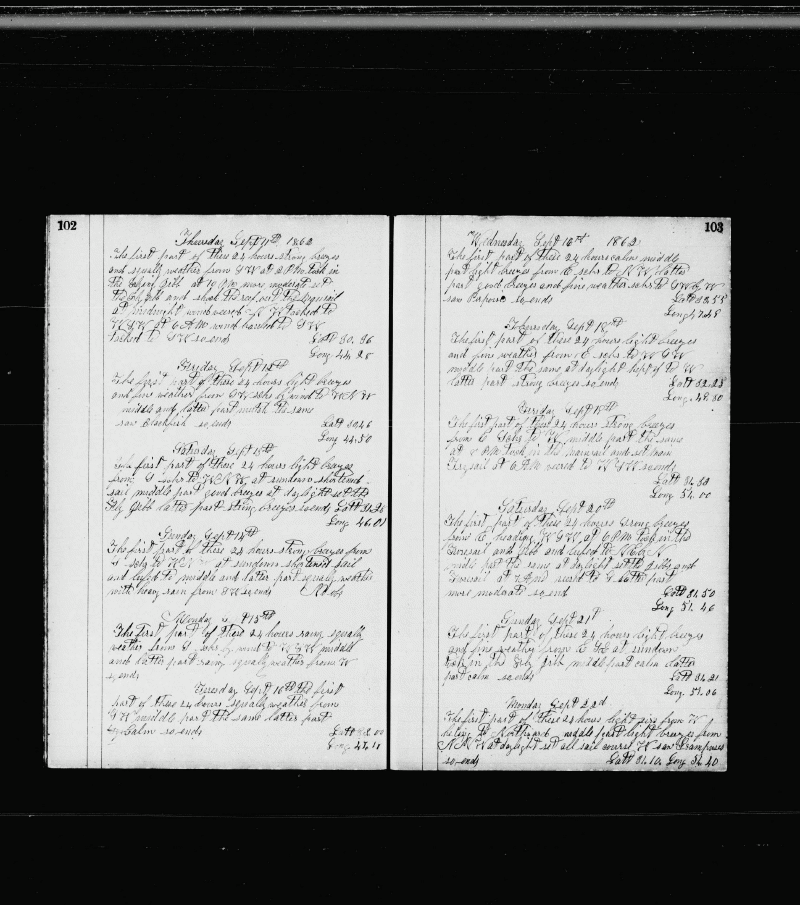 102
Thursday Sept 11th 1862
The first part of these 24 hours strong breezes
and squally weather from SW at 2 P.M. took in
the flying gibb at 4 P.M. more moderate set
the gib and shook the reef out the
at midnight wind veered N W tacked to
W S W at 6 A.M. wind hauled to S W
tacked to S W so ends Latt 30. 36
Long 44. 28
Friday Sept 12th
The first part of these 24 hours light breezes
and fine weather from S W schr wind to W N W
middle and latter part much the same
saw Blackfish so ends Latt 30.46
Long 44.50
Saturday Sept 13th
The first part of these 24 hours light breezes
from S schr to W N W at sundown shortened
sail middle part good breezes at daylight set the
fly gibb latter part strong breezes so ends Latt 31.28
Long 46.01
Sunday Sept 14th
The first part of these 24 hours strong breezes from
S schr to W at sundown shortened sail
and luffed to middle and latter part squally weather
with heavy rain from S W so ends No obs
Monday 15th
The first part of these 24 hours rainy squally
weather from S schr wind to W S W middle
and latter part rainy squally weather from W
so ends
Tuesday Sept 16th the first
part of these 24 hours squally weather from
S W middle part the same latter part
calm so ends Latt 32.00
Long 47.11
103
Wednesday Sept 1862
The first part of these 24 hours calm middle
part light breezes from E schr to N W latter
part good breezes and fine weather schr to S W by W
saw Porpoise so ends Latt 32.55
Long 47.48
Thursday Sept 18th
The first part of these 24 hours light breezes
and fine weather from E schr to W S W
middle part the same at daylight kept off to W
latter part strong breezes so ends Latt 32.23
Long 49.30
Friday Sept 19th
The first part of these 24 hours strong breezes
from E Schr to W middle part the same
at P.M. took in the mainsail and set main
Trysail at 6 A.M. veered to W S W so ends
Latt 31.53
Long 51.00
Saturday Sept 20th
The first part of these 24 hours strong breezes
from E heading W S W at 6 P.M. took in the
foresail and gibb and luffed to N E by N
middle part the same at daylight set the gibb and
foresail at 7 A.M. wind to S latter part
more moderate so end Latt 31.50
Long 51. 46
Sunday Sept 21st
The first part of these 24 hours light breezes
and fine weather from E at sundown
took in the fly gibb middle part calm latter
part calm so ends Latt 31.21
Long 51.06
Monday Sept 22d
The first part of these 24 hours light airs from W
to Northward middle part light breezes from
N N W at daylight set all sail course W saw Grampuses
so ends Latt 31.10. Long 51.40